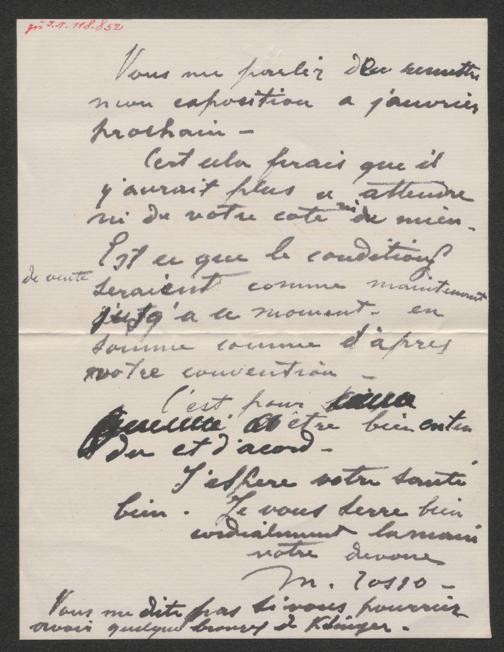 Vous me parliez de remettre
mon exposition a janvier
prochain -
C'est cela ferais que il
y'aurait plus a attendre
ni de votre cote ni de mien.
Est ce que le conditions
de vente
seraient comme maintenant
jusq'a ce moment. en
somme comme d'apres
notre convention -
C'est pour
être bien enten
du et d'acord -
J'espere votre santé
bien. Je vous serre bien
cordialment la main
votre devoue
M. Rosso -
Vous me dite pas si vous pourriez
avoir quelque bronzes de Klinger.